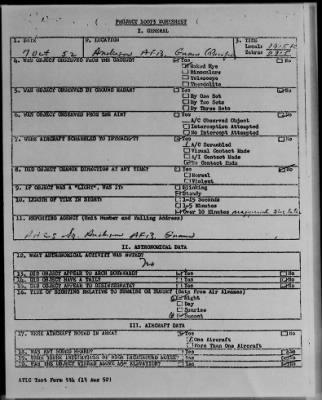 PROJECT 10073 WORKSHEET
I. GENERAL
1. DATE 2. LOCATION 3. TIME
7 Oct 52 Anderson AFB, Guam (Pacific) Local:
Extra:
4. WAS OBJECT OBSERVED FROM THE GROUND? Yes No
Naked Eye
Binoculars
Telescope
Theodolite
5. WAS OBJECT OBSERVED ON GROUND RADAR? Yes No
By One Set
By Two Sets
By Three Sets
6. WAS OBJECT OBSERVED FROM THE AIR? Yes No
A/C Observed Object
Interception Attempted
No Intercept Attempted
7. WERE AIRCRAFT SCRAMBLED TO INTERCEPT? Yes No
A/C Scrambled
Visual Contact Made
A/I Contact Made
No Contact Made
8. DID OBJECT CHANGE DIRECTION AT ANY TIME? Yes No
Normal
Violent
9. IF OBJECT WAS A "LIGHT", WAS IT: Blinking
Steady
10. LENGTH OF TIME IN SIGHT: 1-15 Seconds
1-5 Minutes
Over 10 Minutes
11. REPORTING AGENCY (Unit Number and Mailing Address)
Anderson AFB, Guam
II. ASTRONOMICAL DATA
12. WHAT ASTRONOMICAL ACTIVITY WAS NOTED?
13. DID OBJECT APPEAR TO ARCH DOWNWARD? Yes No
14. DID OBJECT HAVE A TAIL? Yes No
15. DID OBJECT APPEAR TO DISINTEGRATE? Yes No
16. TIME OF SIGHTING RELATIVE TO SUNRISE OR SUNSET (Data from Air Almanac)
Night
Day
Sunrise
Sunset
III. AIRCRAFT DATA
17. WERE AIRCRAFT NOTED IN AREA? Yes No
One Aircraft
More Than One Aircraft
18. WAS ANY SOUND HEARD? Yes No
ATIC Test Form 334 (15 Mar 52)